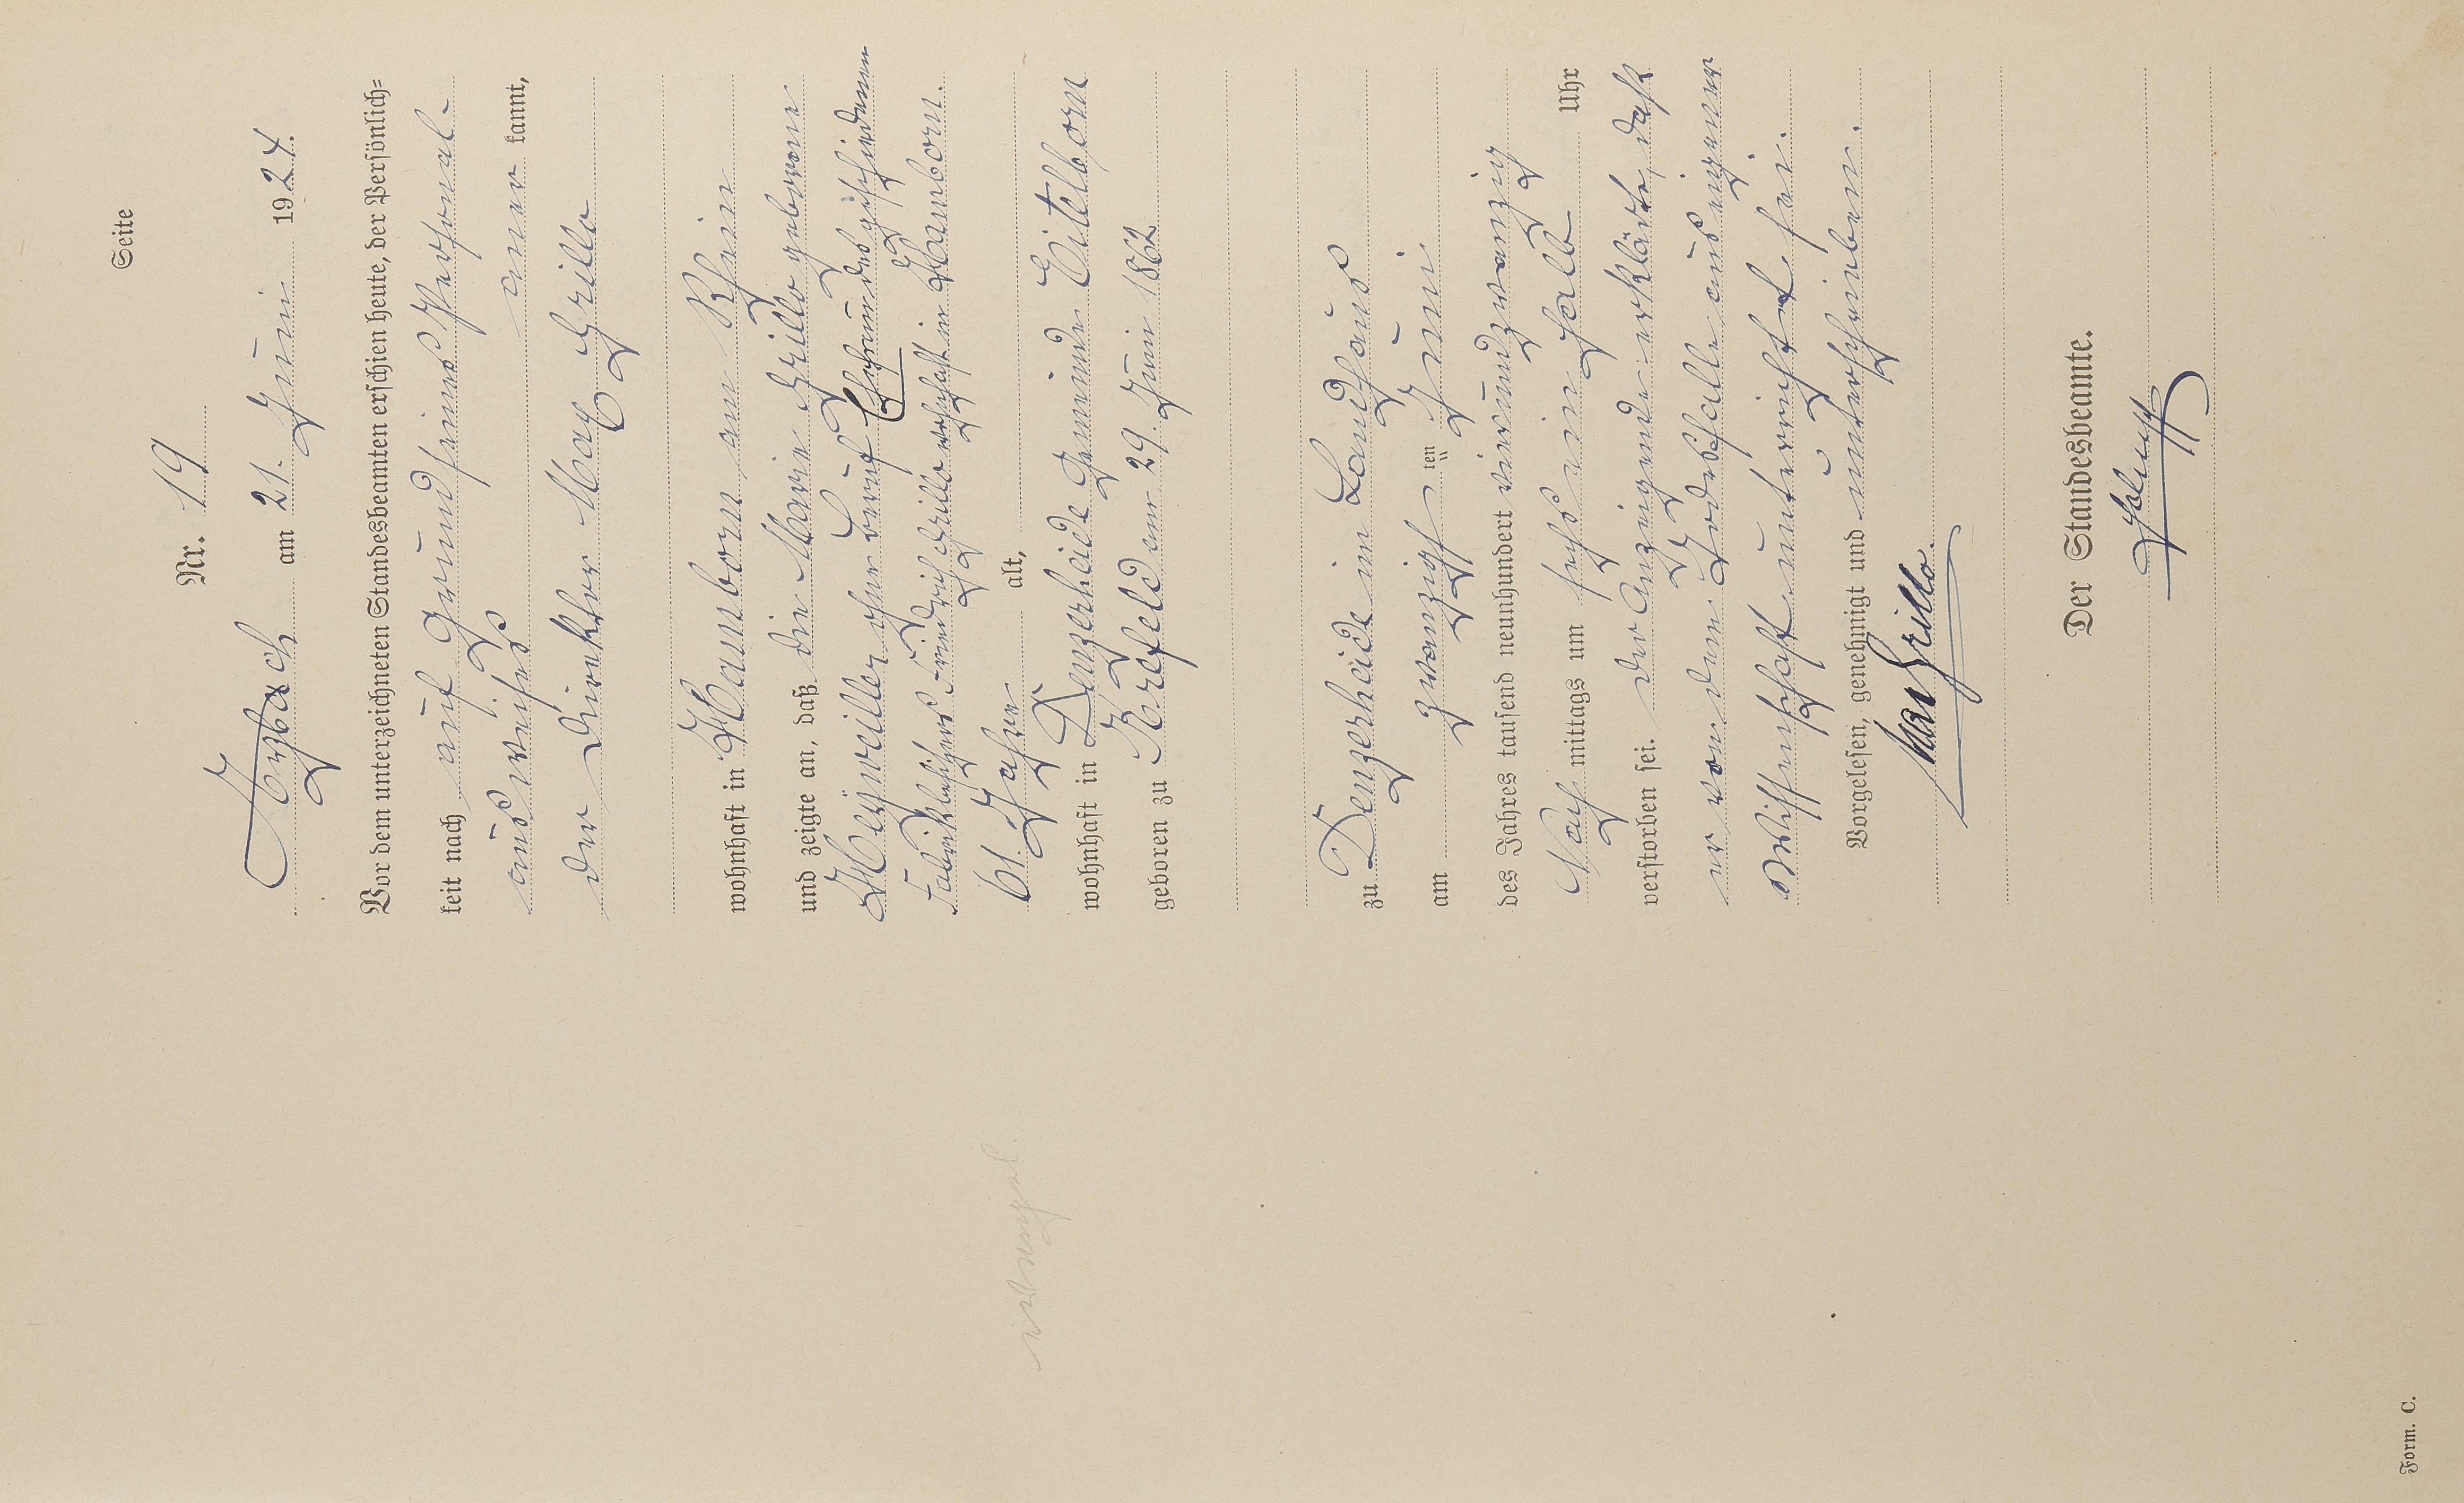 Seite
Nr. 19
Arzbach am 21. Juni 1924.
Vor dem unterzeichneten Standesbeamten erschien heute, der Persönlich-
keit nach auf Grund seines Personal-
ausweises aner kannt,
der Direktor Max Grillo
wohnhaft in Hamborn am Rhein
und zeigte an, daß die Marie Grillo geborene
Heyweiller ohne Beruf Ehefrau des geschiedenen
Fabrikbesitzers Friedrich Grillo wohnhaft in Hamborn.
61 Jahre alt,
wohnhaft in Denzerheide Gemeinde Eitelborn
geboren zu Krefeld am 29. Juni 1862
zu Denzerheide im Landhaus
am zwanzigsten Juni
des Jahres tausend neunhundert vierundzwanzig
Nach mittags um sechs ein halb Uhr
verstorben sei. Der Anzeigende erklärte, daß
er von dem Todesfalle aus eigener
Wissenschaft unterrichtet sei.
Vorgelesen, genehmigt und unterschrieben.
Max Grillo.
Der Standesbeamte.
Form. C.